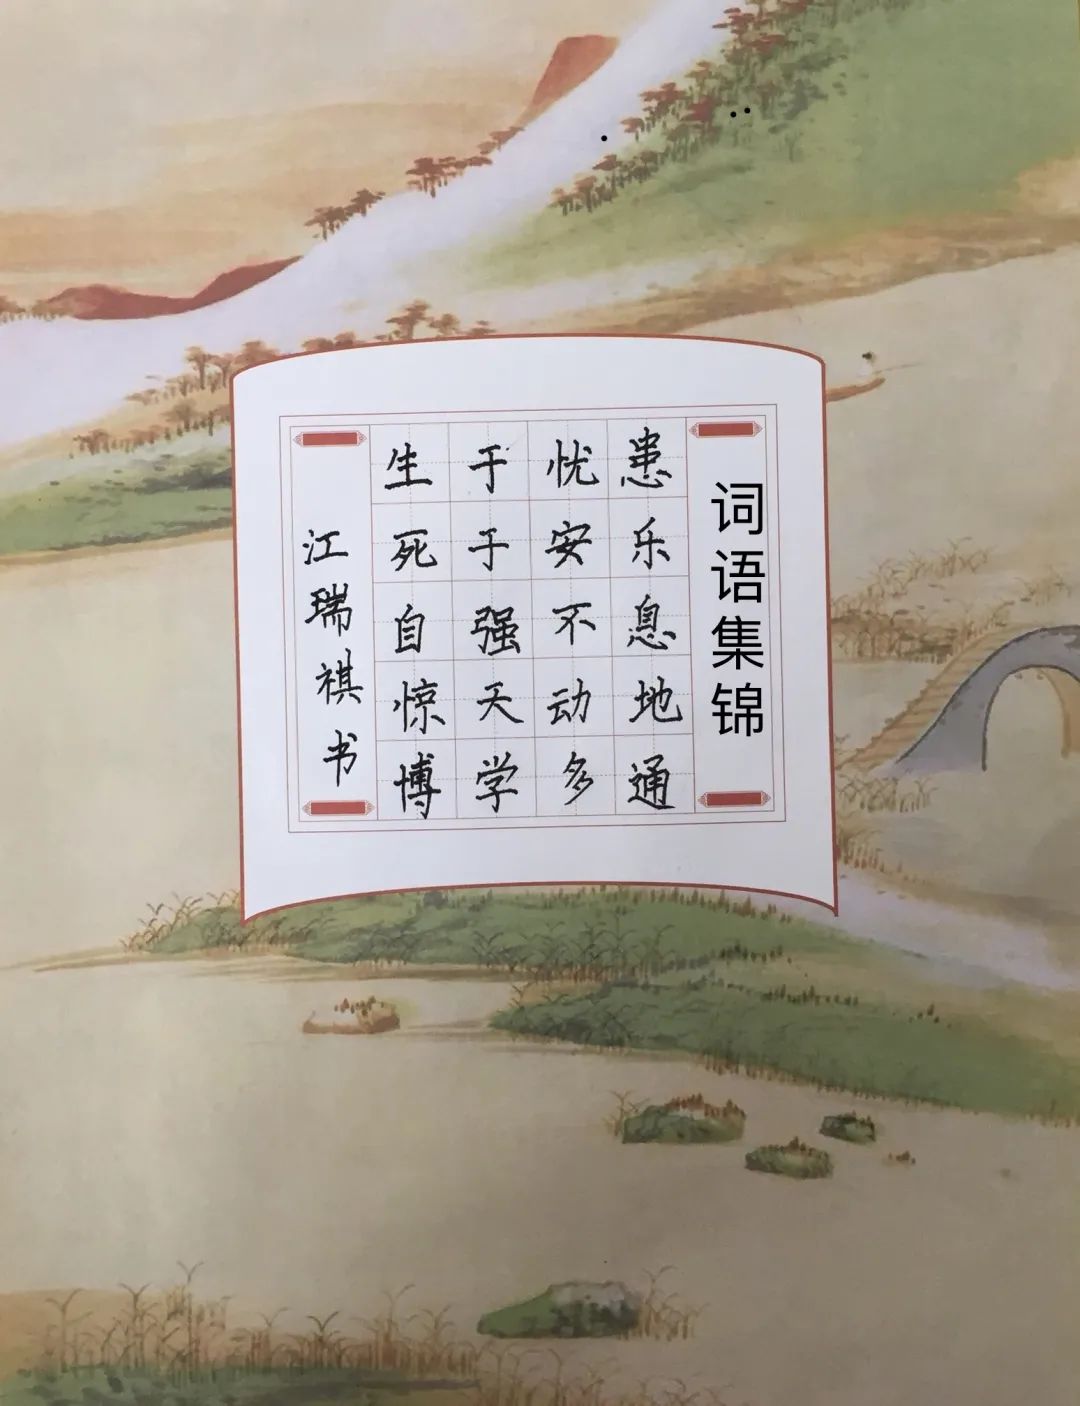 词语集锦
生于忧患
死于安乐
自强不息
惊天动地
博学多通
江瑞祺书